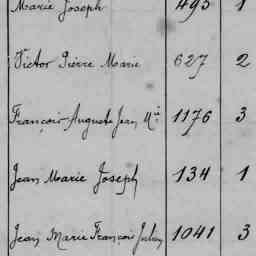 Marie Joseph 493 1
Victor Pierre Marie 627 2
François-Auguste Jean Mie 1176 3
Jean Marie Joseph 134 1
Jean Marie François Julien 1041 3